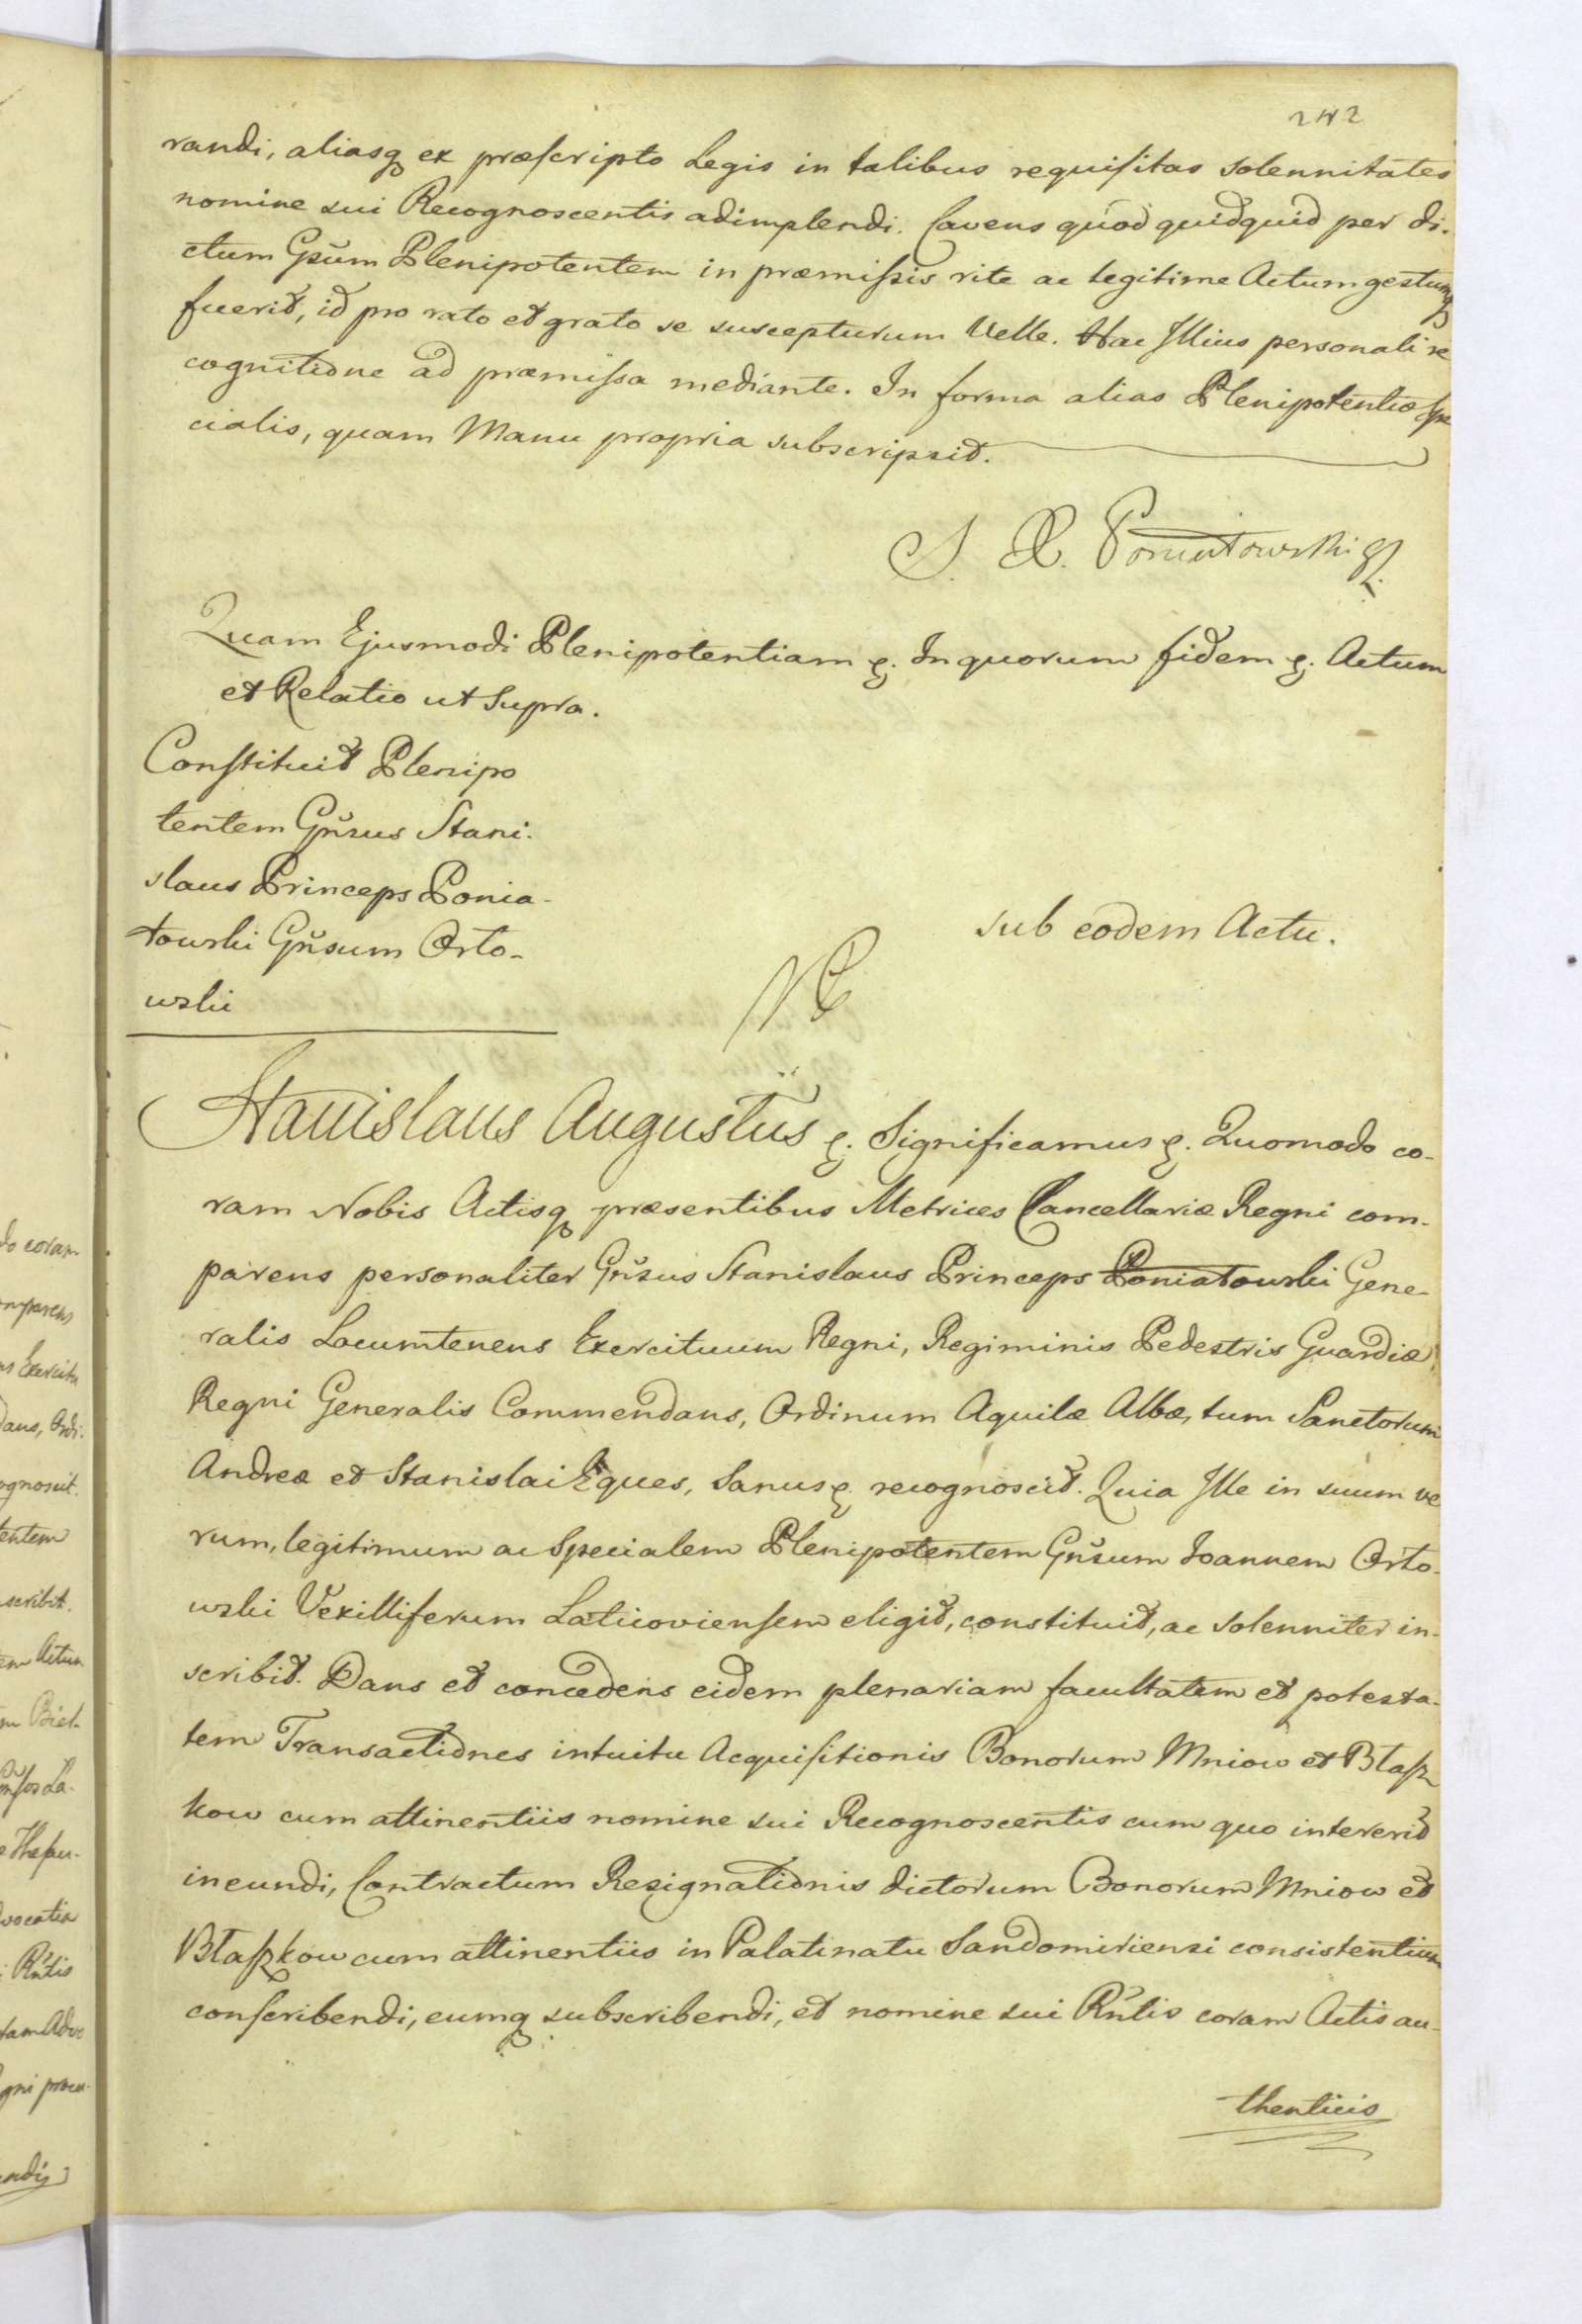 242
randi, aliasq ex præscripto Legis in talibus requisitas solennitates
nomine sui Recognoscentis adimplendi. Cavens quod quidquid per di-
ctum Gsum Plenipotentem in præmissis rite ac legitime Actum gestumq
fuerit, id pro rato et grato se suscepturum Velle. Hac Illius personali re
cognitione ad præmissa mediante. In forma alias Plenipotentiæ spe
cialis, quam Manu propria subscripsit.
S. X. Poniatowski
Quam Ejusmodi Plenipotentiam &. In quorum fidem &. Actum
et Relatio ut Supra.
Constituit Plenipo
tentem Gnsus Stani-
slaus Princeps Ponia-
towski Gnsum Orło-
wski
sub eodem Actu.
Stanislaus Augustus &. Significamus &. Quomodo co-
ram Nobis Actisq præsentibus Metrices Cancellariæ Regni com-
parens personaliter Gnsus Stanislaus Princeps Poniatowski Gene-
ralis Locumtenens Exercituum Regni, Regiminis Pedestris Guardiæ
Regni Generalis Commendans, Ordinum Aquilæ Albæ, tum Sanctorum
Andreæ et Stanislai Eques, Sanus &. recognoscit. Quia Ille in suum ve
rum, legitimum ac Specialem Plenipotentem Gnsum Joannem Orło-
wski Vexilliferum Laticoviensem eligit, constituit, ac solenniter in-
scribit. Dans et concedens eidem plenariam facultatem et potesta-
tem Transactiones intuitu Acquisitionis Bonorum Mniow et Błasz
kow cum attinentiis nomine sui Recognoscentis cum quo intererit
ineundi, Contractum Resignationis dictorum Bonorum Mniow et
Błaszkow cum attinentiis in Palatinatu Sandomiriensi consistentium
conscribendi, eumq subscribendi, et nomine sui Rntis coram Actis au-
thenticis